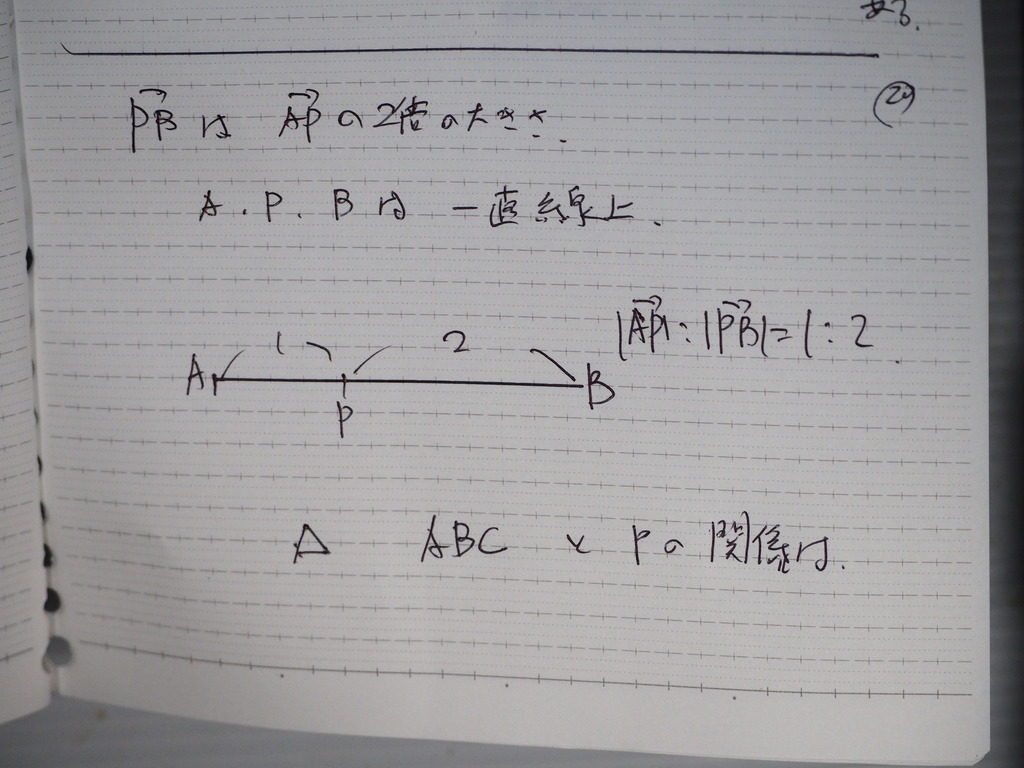 ある.
29
→PBは →APの2倍の大きさ.
A.P.Bは 一直線上.
|→AP|:|→PB|=1:2.
1 2
A P B
△ ABC と Pの関係は.